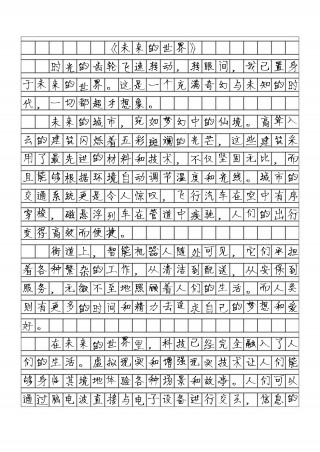 《未来的世界》
时光的齿轮飞速转动，转眼间，我已置身
于未来的世界。这是一个充满奇幻与未知的时
代，一切都超乎想象。
未来的城市，宛如梦幻中的仙境。高耸入
云的建筑闪烁着五彩斑斓的光芒，这些建筑采
用了最先进的材料和技术，不仅坚固无比，而
且能够根据环境自动调节温度和光线。城市的
交通系统更是令人惊叹，飞行汽车在空中有序
穿梭，磁悬浮列车在管道中疾驰，人们的出行
变得高效而便捷。
街道上，智能机器人随处可见，它们承担
着各种繁杂的工作，从清洁到配送，从安保到
服务，无微不至地照顾着人们的生活。而人类
则有更多的时间和精力去追求自己的梦想和爱
好。
在未来的世界里，科技已经完全融入了人
们的生活。虚拟现实和增强现实技术让人们能
够身临其境地体验各种场景和故事。人们可以
通过脑电波直接与电子设备进行交流，信息的